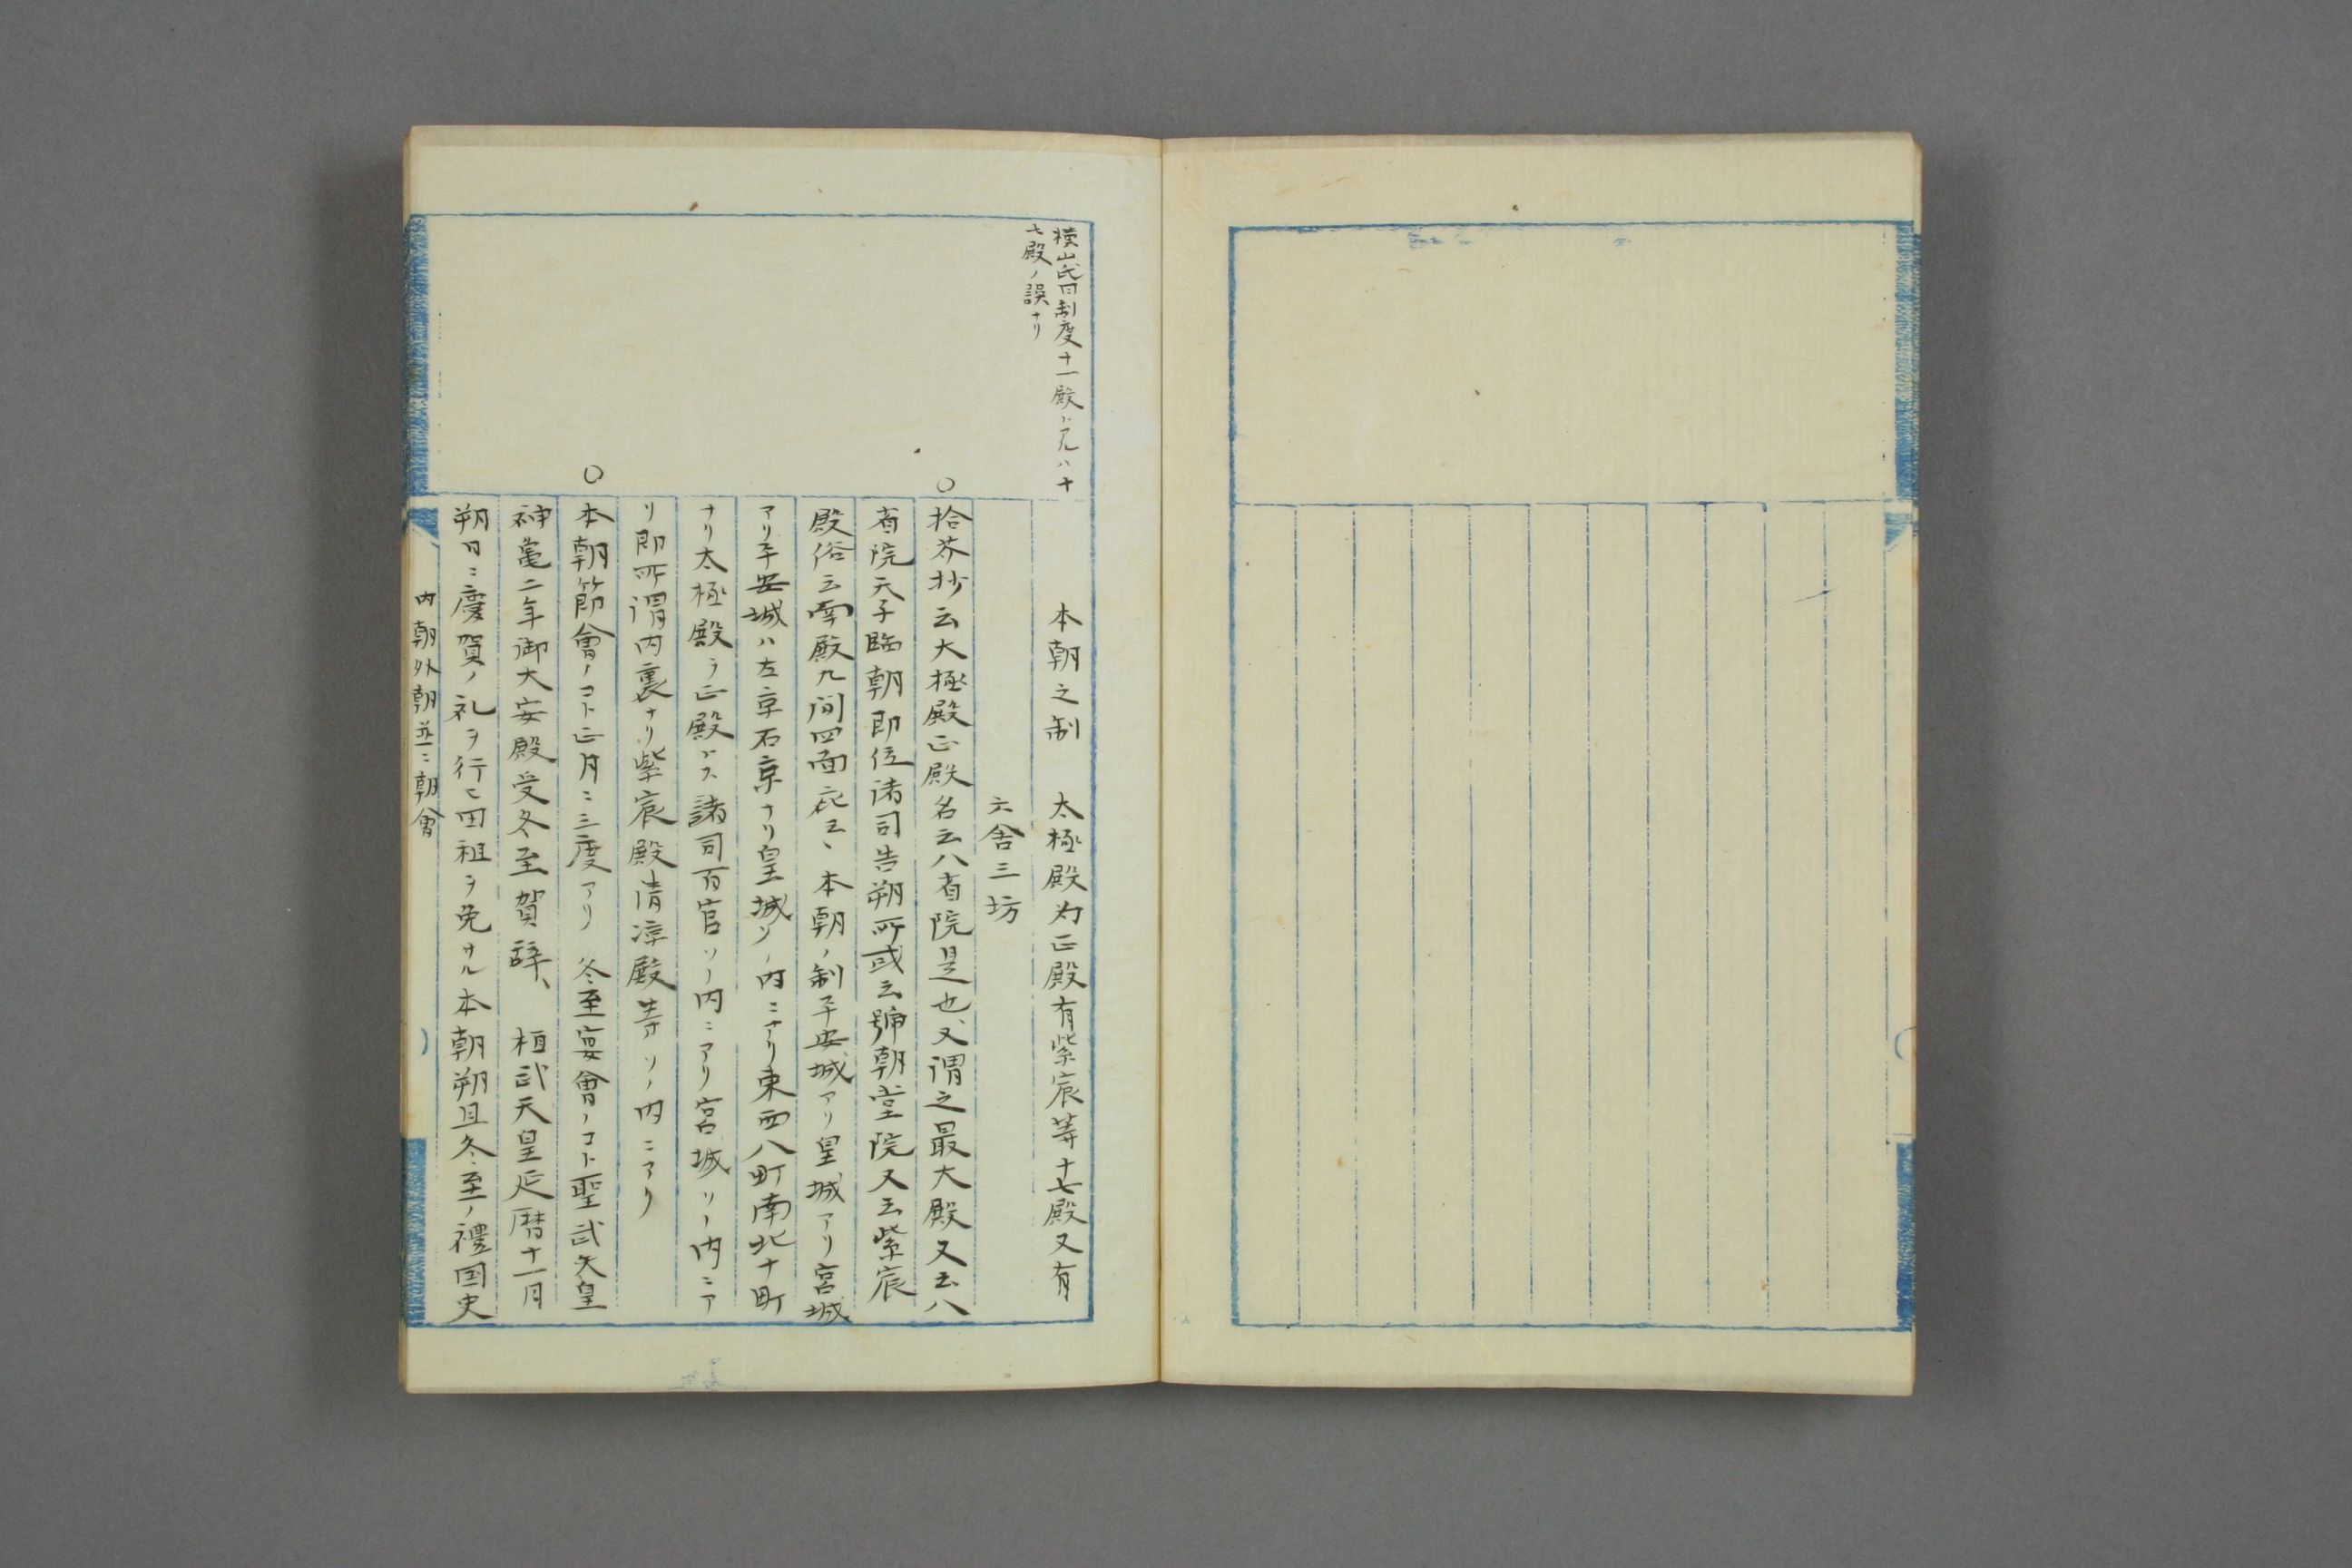 横山氏曰制度十一殿トアルハ十
七殿ノ誤ナリ
本朝之制 太極殿为正殿有紫宸等十七殿又有
六舎三坊
○拾芥抄云大極殿正殿名云八省院是也又謂之最大殿又云八
省院天子臨朝即位諸司告朔所或云號朝堂院又云紫宸
殿俗云南殿九間四面云々 本朝ノ制平安城アリ皇城アリ宮城
アリ平安城ハ左京右京ナリ皇城ソノ内ニアリ東西八町南北十町
ナリ太極殿ヲ正殿トス諸司百官ソノ内ニアリ宮城ソノ内ニア
リ即所謂内裏ナリ紫宸殿清涼殿等ソノ内ニアリ
○本朝節會ノコト正月ニ三度アリ 冬至宴會ノコト聖武天皇
神亀二年御大安殿受冬至賀辞、 桓武天皇延暦十一月
朔日ニ慶賀ノ礼ヲ行ヒ田祖ヲ免サル本朝朔旦冬至ノ禮国史
内朝外朝並ニ朝會